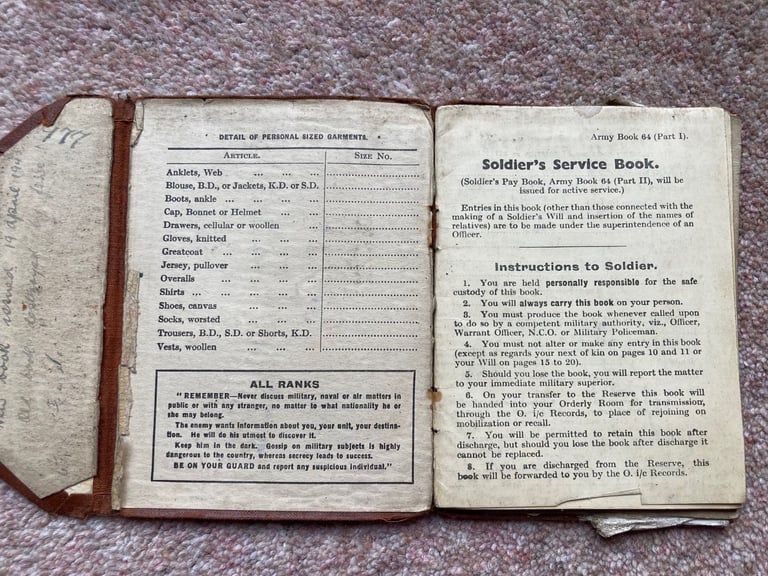 177
DETAIL OF PERSONAL SIZED GARMENTS.
ARTICLE. SIZE No.
Anklets, Web ... ...
Blouse, B.D., or Jackets, K.D. or S.D.
Boots, ankle ... ... ...
Cap, Bonnet or Helmet ... ...
Drawers, cellular or woollen ...
Gloves, knitted ... ... ...
Greatcoat ... ... ... ...
Jersey, pullover ... ... ...
Overalls ... ... ... ...
Shirts ... ... ... ... ...
Shoes, canvas ... ... ...
Socks, worsted ... ... ...
Trousers, B.D., S.D. or Shorts, K.D.
Vests, woollen ... ... ...
ALL RANKS
"REMEMBER—Never discuss military, naval or air matters in
public or with any stranger, no matter to what nationality he or
she may belong.
The enemy wants information about you, your unit, your destina-
tion. He will do his utmost to discover it.
Keep him in the dark. Gossip on military subjects is highly
dangerous to the country, whereas secrecy leads to success.
BE ON YOUR GUARD and report any suspicious individual."
Army Book 64 (Part I).
Soldier's Service Book.
(Soldier's Pay Book, Army Book 64 (Part II), will be
issued for active service.)
Entries in this book (other than those connected with the
making of a Soldier's Will and insertion of the names of
relatives) are to be made under the superintendence of an
Officer.
Instructions to Soldier.
1. You are held personally responsible for the safe
custody of this book.
2. You will always carry this book on your person.
3. You must produce the book whenever called upon
to do so by a competent military authority, viz., Officer,
Warrant Officer, N.C.O. or Military Policeman.
4. You must not alter or make any entry in this book
(except as regards your next of kin on pages 10 and 11 or
your Will on pages 15 to 20).
5. Should you lose the book, you will report the matter
to your immediate military superior.
6. On your transfer to the Reserve this book will
be handed into your Orderly Room for transmission,
through the O. i/c Records, to place of rejoining on
mobilization or recall.
7. You will be permitted to retain this book after
discharge, but should you lose the book after discharge it
cannot be replaced.
8. If you are discharged from the Reserve, this
book will be forwarded to you by the O. i/c Records.
book 19 April